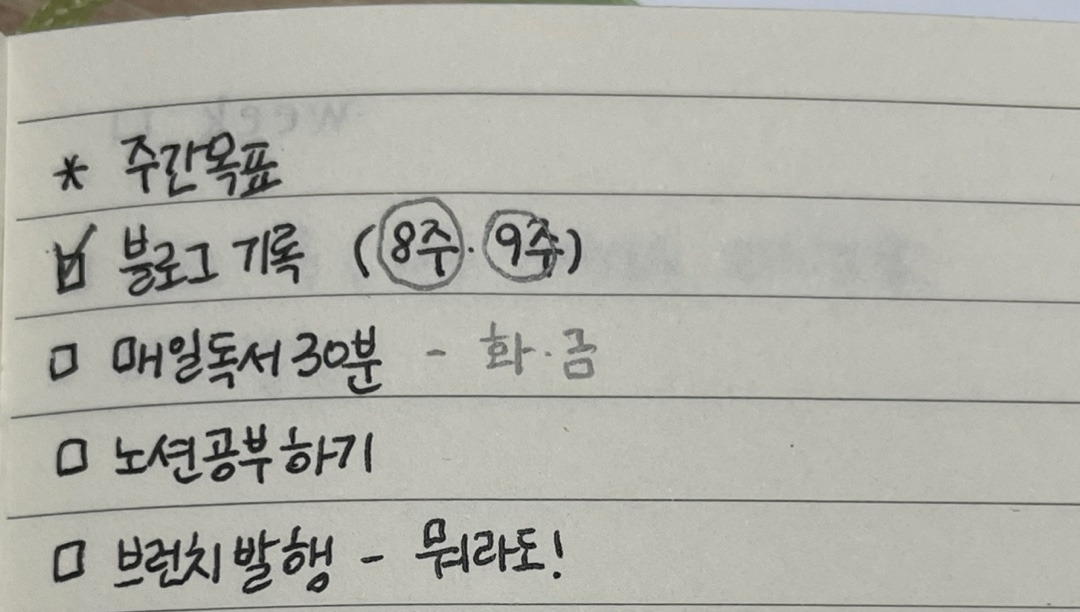 * 주간목표
☑ 블로그 기록 (8주·9주)
☐ 매일독서 30분 - 화·금
☐ 노션공부하기
☐ 브런치 발행 - 뭐라도!